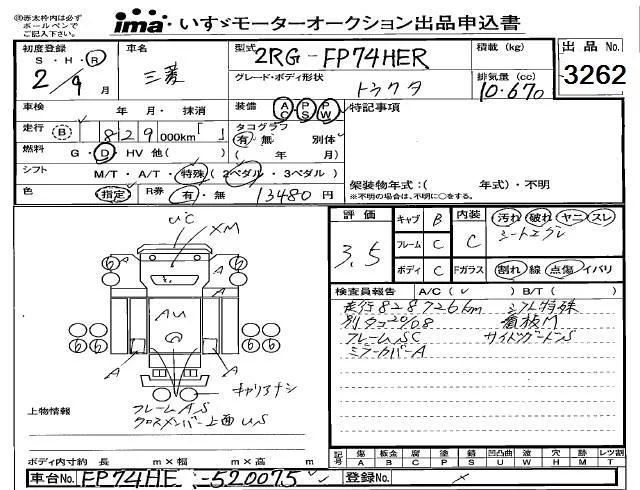 ㊟赤太枠内は必ず
ボールペンで
ご記入下さい。
ima いすゞモーターオークション出品申込書
初度登録 車名 型式 2RG-FP74HER 積載 (kg) 出品 No.
S・H・R
2/9月 三菱 グレード・ボディ形状 トラクタ 排気量(cc) 10.670 3262
車検 年・月・抹消 装備 AC PS PW 特記事項
走行 B 829000km「 」 タコグラフ 有 無 別体
燃料 G・D・HV 他( ) ( 年 月)
シフト M/T・A/T・特殊(2ペダル・3ペダル)
色 指定 R券 有・無 13480円
架装物年式:( 年式)・不明
※不明の場合は、不明に○をする。
評価 キャブ B 内装 汚れ 破れ ヤニ スレ
3.5 フレーム C C
ボディ C Fガラス 割れ 線 点傷 イバリ
検査員報告 A/C( ✓ ) B/T( )
走行828726km シフト特殊
看板M
フレームSC
ミラーカバーA
UC
XM
AU
A
A
A
A
キャリアナシ
フレームAS
クロスメンバー上面US
上物情報
ボディ内寸約 長 m×幅 m×高 m
記号 傷 A 板金 B 腐 C 補 P 塗 S 凹凸曲 U 波 W 穴 H 跡 M レツ割 T
車台No. FP74HE-520075 登録No.